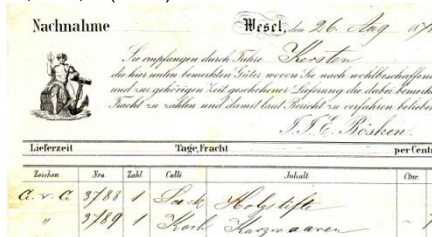 Nachnahme
Wesel, den 26. Aug 187
Sie empfangen durch Fuhre Kersten
die hier unten bemerkten Güter, wovon Sie nach wohlbeschaffene
und zur gehörigen Zeit geschehener Lieferung die dabei bemerk
Fracht zu zahlen und damit laut Bericht zu verfahren belieben
J. F. E. Bösken.
Lieferzeit Tage, Fracht per Cent
Zeichen Nro Zahl Colli Inhalt Ctnr
C. v. C 3788 1 Sack Holzstifte
" 3789 1 Korb Kurzwaaren